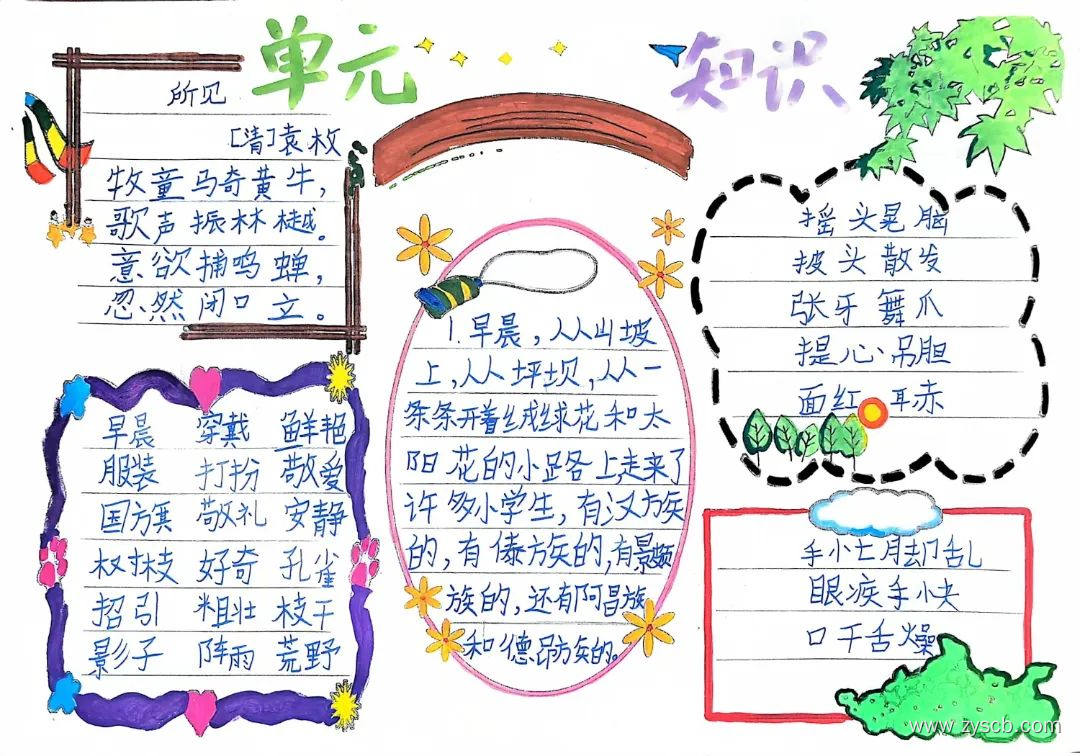 单元 知识
所见
[清]袁枚
牧童马奇黄牛，
歌声振林樾。
意欲捕鸣蝉，
忽然闭口立。
早晨 穿戴 鲜艳
服装 打扮 敬爱
国旗 敬礼 安静
树枝 好奇 孔雀
招引 粗壮 枝干
影子 阵雨 荒野
1.早晨，从山坡
上，从坪坝，从一
条条开着绒球花和太
阳花的小路上走来了
许多小学生，有汉族
的，有傣族的，有景颇
族的，还有阿昌族
和德昂族的。
摇头晃脑
披头散发
张牙舞爪
提心吊胆
面红耳赤
手忙却乱
眼疾手快
口干舌燥
www.zyscb.com